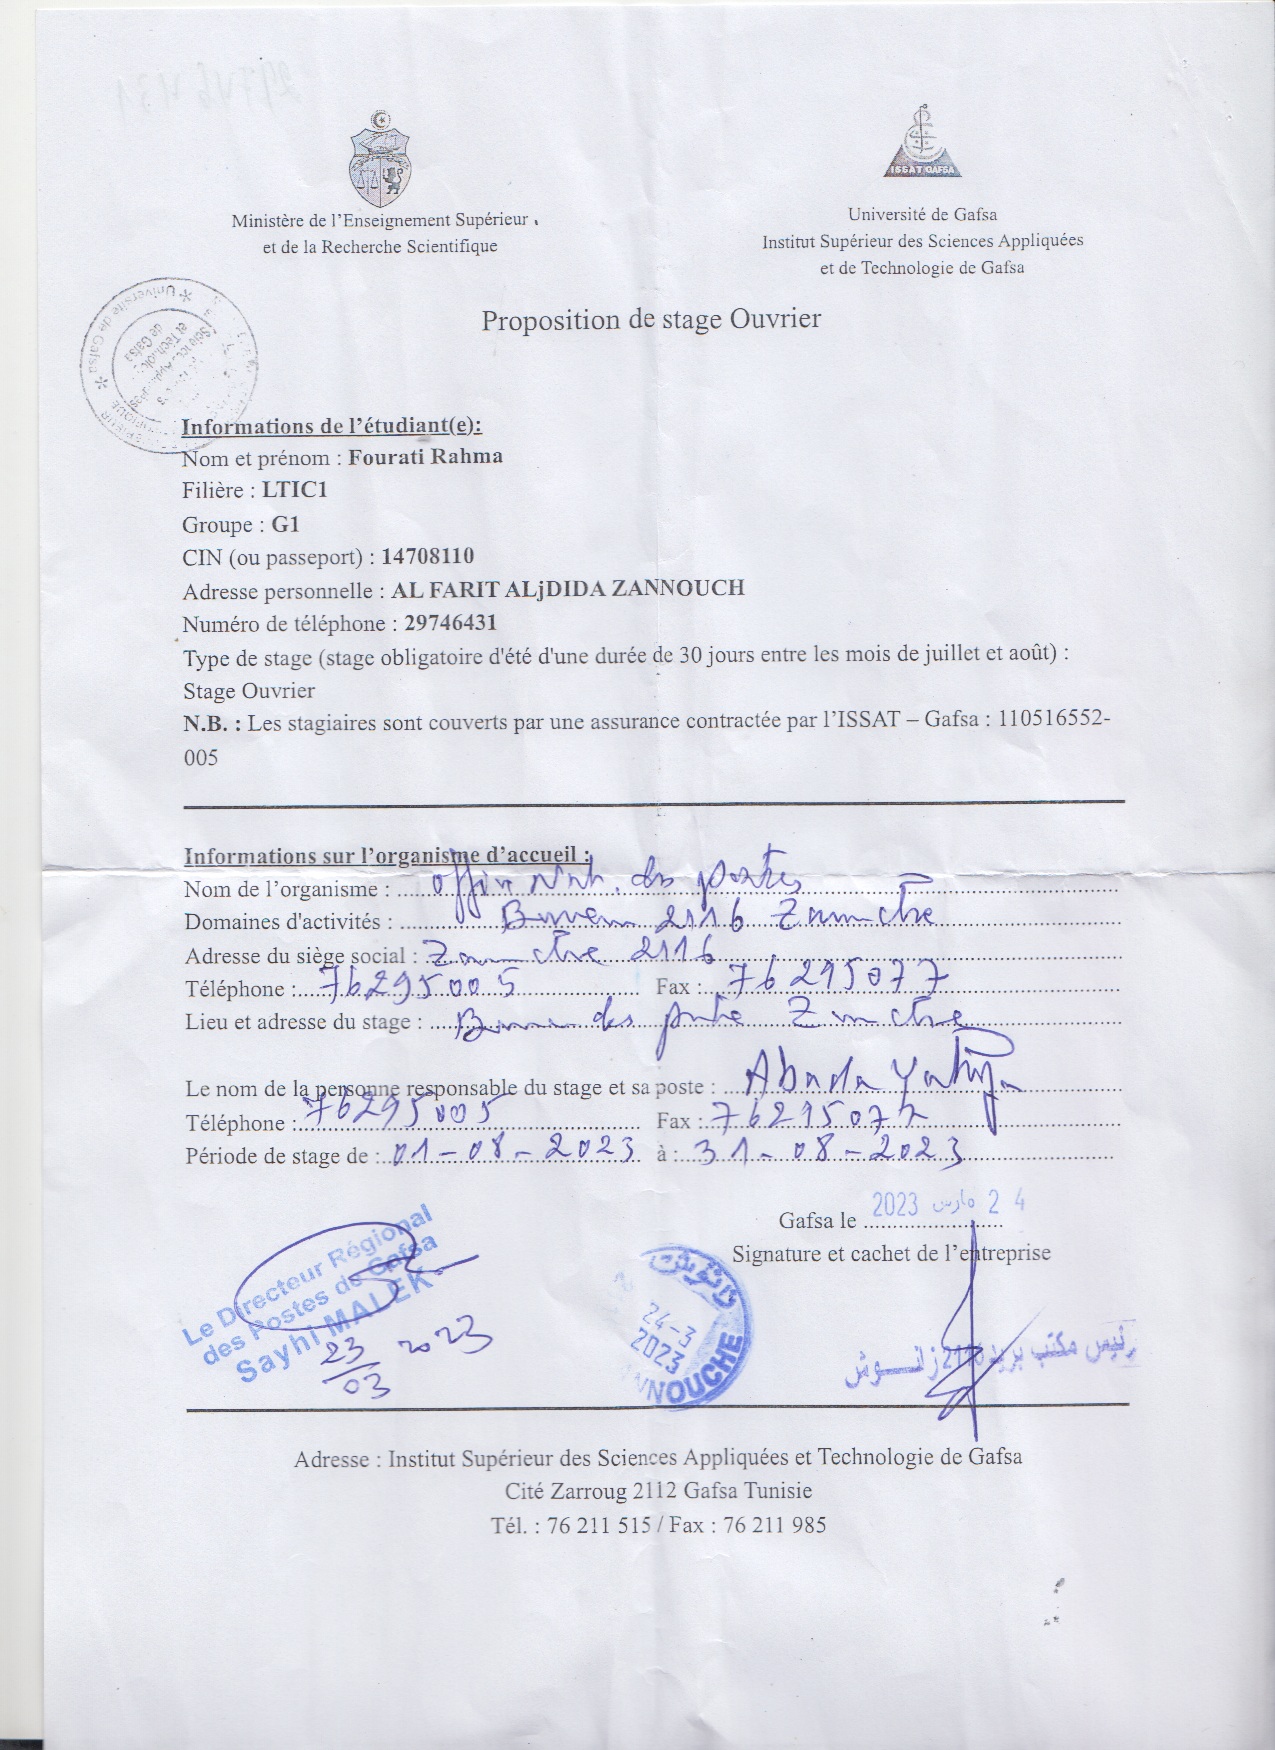 ISSAT GAFSA
Ministère de l'Enseignement Supérieur
et de la Recherche Scientifique
Université de Gafsa
Institut Supérieur des Sciences Appliquées
et de Technologie de Gafsa
Université de Gafsa
Proposition de stage Ouvrier
Informations de l'étudiant(e):
Nom et prénom : Fourati Rahma
Filière : LTIC1
Groupe : G1
CIN (ou passeport) : 14708110
Adresse personnelle : AL FARIT ALjDIDA ZANNOUCH
Numéro de téléphone : 29746431
Type de stage (stage obligatoire d'été d'une durée de 30 jours entre les mois de juillet et août) :
Stage Ouvrier
N.B. : Les stagiaires sont couverts par une assurance contractée par l'ISSAT – Gafsa : 110516552-
005
Informations sur l'organisme d'accueil :
Nom de l'organisme : des postes
Domaines d'activités : Bureau 2116
Adresse du siège social : 2116
Téléphone : 76295005 Fax : 76295077
Lieu et adresse du stage : des
Le nom de la personne responsable du stage et sa poste : Abada
Téléphone : 76295005 Fax : 76295077
Période de stage de : 01-08-2023 à : 31-08-2023
Gafsa le 2023 مارس 24
Signature et cachet de l'entreprise
Le Directeur Régional
des Postes de Gafsa
Sayhi MALEK
23 2023
03
زانوش
24-3
2023
NNOUCHE
رئيس مكتب بريد 2116 زانـــوش
Adresse : Institut Supérieur des Sciences Appliquées et Technologie de Gafsa
Cité Zarroug 2112 Gafsa Tunisie
Tél. : 76 211 515 / Fax : 76 211 985